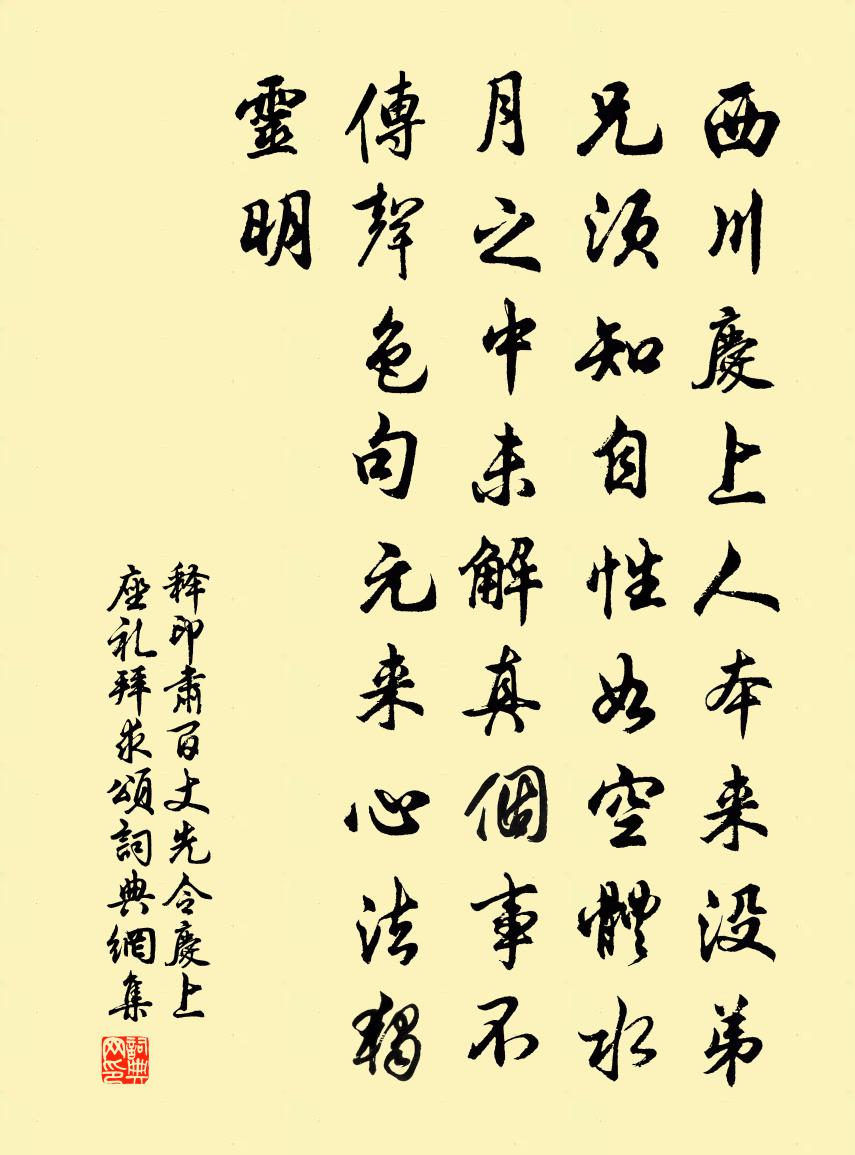 西川慶上人本来没弟
兄须知自性如空體水
月之中未解真個事不
傳聲色句元来心法獨
靈明
释印肃百丈先令慶上
座礼拜求頌詞典網集